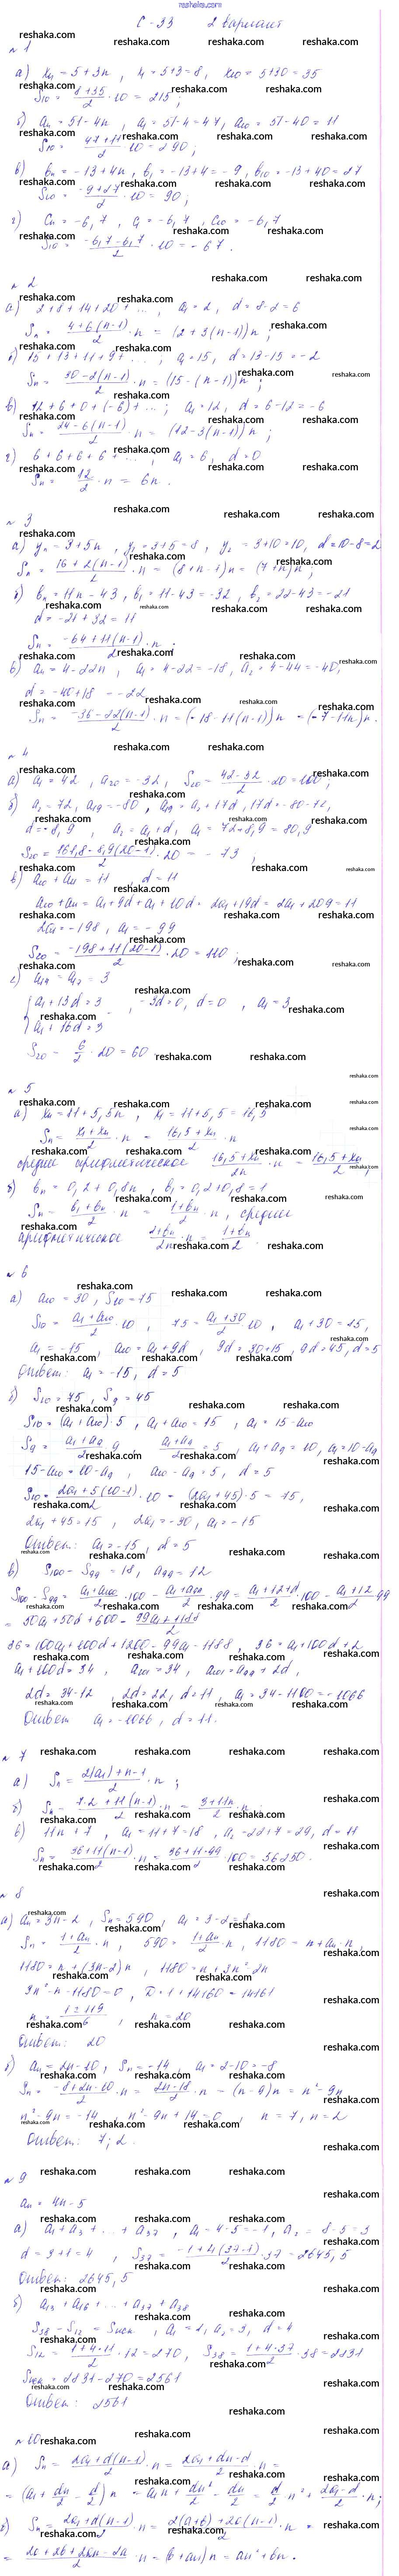 reshaka.com
С-33 2 вариант
№ 1
а) xₙ = 5 + 3n, x₁ = 5+3 = 8, x₁₀ = 5+30 = 35
S₁₀ = (8+35)/2 · 10 = 215;
б) aₙ = 51 - 4n, a₁ = 51-4 = 47, a₁₀ = 51-40 = 11
S₁₀ = (47+11)/2 · 10 = 290;
в) bₙ = -13 + 4n, b₁ = -13+4 = -9, b₁₀ = -13+40 = 27
S₁₀ = (-9+27)/2 · 10 = 90;
г) cₙ = -6,7, c₁ = -6,7, c₁₀ = -6,7
S₁₀ = (-6,7-6,7)/2 · 10 = -67.
№ 2
а) 2+8+14+20+..., a₁ = 2, d = 8-2 = 6
Sₙ = (4+6(n-1))/2 · n = (2+3(n-1))n;
б) 15+13+11+9+...; a₁ = 15, d = 13-15 = -2
Sₙ = (30-2(n-1))/2 · n = (15-(n-1))n;
в) 12+6+0+(-6)+...; a₁ = 12, d = 6-12 = -6
Sₙ = (24-6(n-1))/2 · n = (12-3(n-1))n;
г) 6+6+6+6+..., a₁ = 6, d = 0
Sₙ = 12/2 · n = 6n.
№ 3
а) yₙ = 3+5n, y₁ = 3+5 = 8, y₂ = 3+10 = 10, d = 10-8 = 2
Sₙ = (16+2(n-1))/2 · n = (8+n-1)n = (7+n)n;
б) bₙ = 11n-43, b₁ = 11-43 = -32, b₂ = 22-43 = -21
d = -21+32 = 11
Sₙ = (-64+11(n-1))/2 · n.
в) aₙ = 4-22n, a₁ = 4-22 = -18, a₂ = 4-44 = -40,
d = -40+18 = -22
Sₙ = (-36-22(n-1))/2 · n = (-18-11(n-1))n = (-7-11n)n.
№ 4
а) a₁ = 42, a₂₀ = -32, S₂₀ = (42-32)/2 · 20 = 100;
б) a₂ = 72, a₁₉ = -80, a₁₉ = a₂+17d, 17d = -80-72,
d = -8,9, a₂ = a₁+d, a₁ = 72+8,9 = 80,9
S₂₀ = (161,8-8,9(20-1))/2 · 20 = -73;
в) a₁₀+a₁₁ = 11, d = 11
a₁₀+a₁₁ = a₁+9d+a₁+10d = 2a₁+19d = 2a₁+209 = 11
2a₁ = -198, a₁ = -99
S₂₀ = (-198+11(20-1))/2 · 20 = 110;
г) a₁₄ = a₁₇ = 3
{a₁+13d = 3
a₁+16d = 3, -3d = 0, d = 0, a₁ = 3
S₂₀ = 6/2 · 20 = 60
№ 5
а) xₙ = 11+5,5n, x₁ = 11+5,5 = 16,5
Sₙ = (x₁+xₙ)/2 · n = (16,5+xₙ)/2 · n
среднее арифметическое (16,5+xₙ)/2n · n = (16,5+xₙ)/2;
б) bₙ = 0,2+0,8n, b₁ = 0,2+0,8 = 1
Sₙ = (b₁+bₙ)/2 · n = (1+bₙ)/2 · n, среднее
арифметическое (1+bₙ)/2n · n = (1+bₙ)/2.
№ 6
а) a₁₀ = 30, S₁₀ = 75
S₁₀ = (a₁+a₁₀)/2 · 10, 75 = (a₁+30)/2 · 10, a₁+30 = 15,
a₁ = -15, a₁₀ = a₁+9d, 9d = 30+15, 9d = 45, d = 5
Ответ: a₁ = -15, d = 5
б) S₁₀ = 75, S₉ = 45
S₁₀ = (a₁+a₁₀)·5, a₁+a₁₀ = 15, a₁ = 15-a₁₀
S₉ = (a₁+a₉)/2 · 9, (a₁+a₉)/2 = 5, a₁+a₉ = 10, a₁ = 10-a₉
15-a₁₀ = 10-a₉, a₁₀-a₉ = 5, d = 5
S₁₀ = (2a₁+5(10-1))/2 · 10 = (2a₁+45)·5 = 75,
2a₁+45 = 15, 2a₁ = -30, a₁ = -15
Ответ: a₁ = -15, d = 5
в) S₁₀₀-S₉₉ = 18, a₉₉ = 12
S₁₀₀-S₉₉ = (a₁+a₁₀₀)/2 · 100 - (a₁+a₉₉)/2 · 99 = (a₁+12+d)/2 · 100 - (a₁+12)/2 · 99
= 50a₁+50d+600 - (99a₁+1188)/2
36 = 100a₁+100d+1200-99a₁-1188, 36 = a₁+100d+2
a₁+100d = 34, a₁₀₁ = 34, a₁₀₁ = a₉₉+2d,
2d = 34-12, 2d = 22, d = 11, a₁ = 34-1100 = -1066
Ответ a₁ = -1066, d = 11.
№ 7
а) Sₙ = (2(a₁)+n-1)/2 · n;
б) Sₙ = (7·2+11(n-1))/2 · n = (3+11n)/2 · n
в) 11n+7, a₁ = 11+7 = 18, a₂ = 22+7 = 29, d = 11
Sₙ = (36+11(n-1))/2 · n = (36+11·99)/2 · 100 = 56250.
№ 8
а) aₙ = 3n-2, Sₙ = 590, a₁ = 3-2 = 8
Sₙ = (1+aₙ)/2 · n, 590 = (1+aₙ)/2 · n, 1180 = n+aₙ·n,
1180 = n+(3n-2)n, 1180 = n+3n²-2n
3n²-n-1180 = 0, D = 1+14160 = 14161
n = (1±119)/6, n = 20
Ответ: 20
б) aₙ = 2n-10, Sₙ = -14, a₁ = 2-10 = -8
Sₙ = (-8+2n-10)/2 · n = (2n-18)/2 · n = (n-9)n = n²-9n
n²-9n = -14, n²-9n+14 = 0, n = 7, n = 2
Ответ: 7; 2.
№ 9
aₙ = 4n-5
а) a₁+a₃+...+a₃₇, a₁ = 4-5 = -1, a₂ = 8-5 = 3
d = 3+1 = 4, S₃₇ = (-1+4(37-1))/2 · 37 = 2645,5
Ответ: 2645,5
б) a₁₃+a₁₆+...+a₃₇+a₃₈
S₃₈-S₁₂ = Sиск, a₁ = 1, a₂ = 3, d = 4
S₁₂ = (1+4·11)/2 · 12 = 270, S₃₈ = (1+4·37)/2 · 38 = 2831
Sиск = 2831-270 = 2561
Ответ: 2561
№ 10
а) Sₙ = (2a₁+d(n-1))/2 · n = (2a₁+dn-d)/2 · n =
= (a₁+dn/2-d/2)n = a₁n+dn²/2-dn/2 = d/2 · n²+(2a₁-d)/2 · n;
б) Sₙ = (2a₁+d(n-1))/2 · n = (2(a+b)+2a(n-1))/2 · n =
= (2a+2b+2an-2a)/2 · n = (b+an)n = an²+bn.